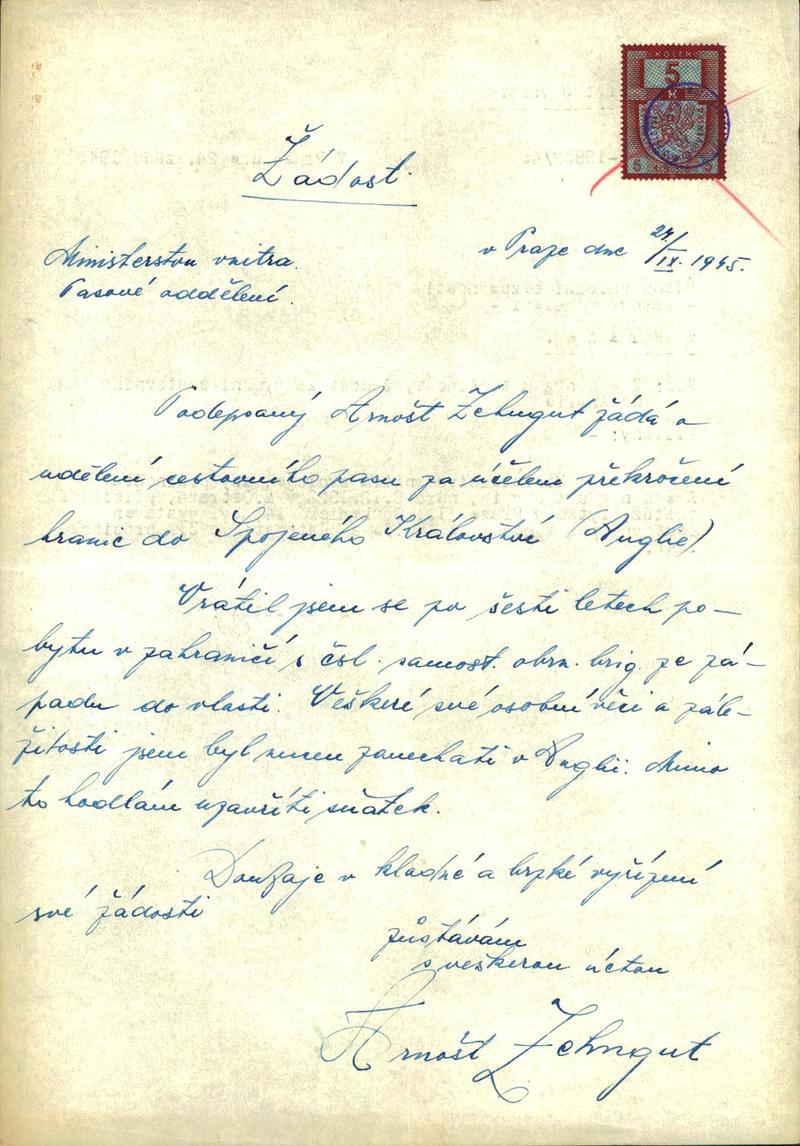 KOLEK
5
K
5 5
Žádost.
v Praze dne 24/IX. 1945.
Ministerstvu vnitra.
Pasové oddělení.
Podepsaný Arnošt Zehngut žádá o
udělení cestovního pasu za účelem překročení
hranic do Spojeného Království (Anglie).
Vrátil jsem se po šesti letech po-
bytu v zahraničí s čsl. samost. obrn. brig. ze zá-
padu do vlasti. Veškeré své osobní věci a zále-
žitosti jsem byl nucen zanechati v Anglii. Mimo
to hodlám uzavříti sňatek.
Doufaje v kladné a brzké vyřízení
své žádosti
zůstávám
s veškerou úctou
Arnošt Zehngut